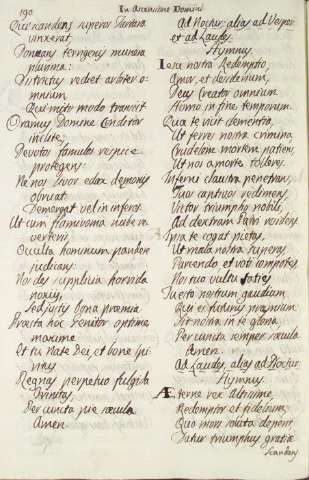 190
In Ascensione Domini
Qui scandens superos
vinxerat.
Donans terrigenis munera
plurima:
Districtus rediet arbiter o-
mnium,
Qui mitis modo transiit
Oramus Domine Conditor
inclite:
Devotos famulos respice
protegens:
Ne nos livor edax demonis
obruat:
Demergat vel in inferos.
Ut cum flammivoma nube re-
verteris:
Occulta hominum pandere
judicans:
Non des supplicia horrida
noxijs,
Sed justis bona præmia.
Præsta hoc Genitor optime
maxime:
Et tu Nate Dei, et bone Spi-
ritus:
Regnans perpetuo fulgida
Trinitas,
Per cuncta pie sæcula
Amen.
ad Noctur, alias ad Vesper
et ad Laudes.
Hymnus
Iesu nostra Redemptio,
Amor, et desiderium,
Deus Creator omnium
Homo in fine temporum.
Quæ te vicit clementia,
Ut ferres nostra crimina,
Crudelem mortem patiens,
Ut nos a morte tolleres.
Inferni claustra penetrans,
Tuos captivos redimens,
Victor triumpho nobili
ad dextram Patris residens.
Ipsa te cogat pietas,
Ut mala nostra superes
Parcendo, et voti compotes
Nos tuo vultu saties.
Tu esto nostrum gaudium,
Qui es futurus præmium:
Sit nostra in te gloria
Per cuncta semper sæcula
Amen.
ad Laudes, alias ad Noctur.
Hymnus
Æterne rex altissime,
Redemptor et fidelium,
Quo mors soluta deperit,
Datur triumphus gratiæ
Scandens